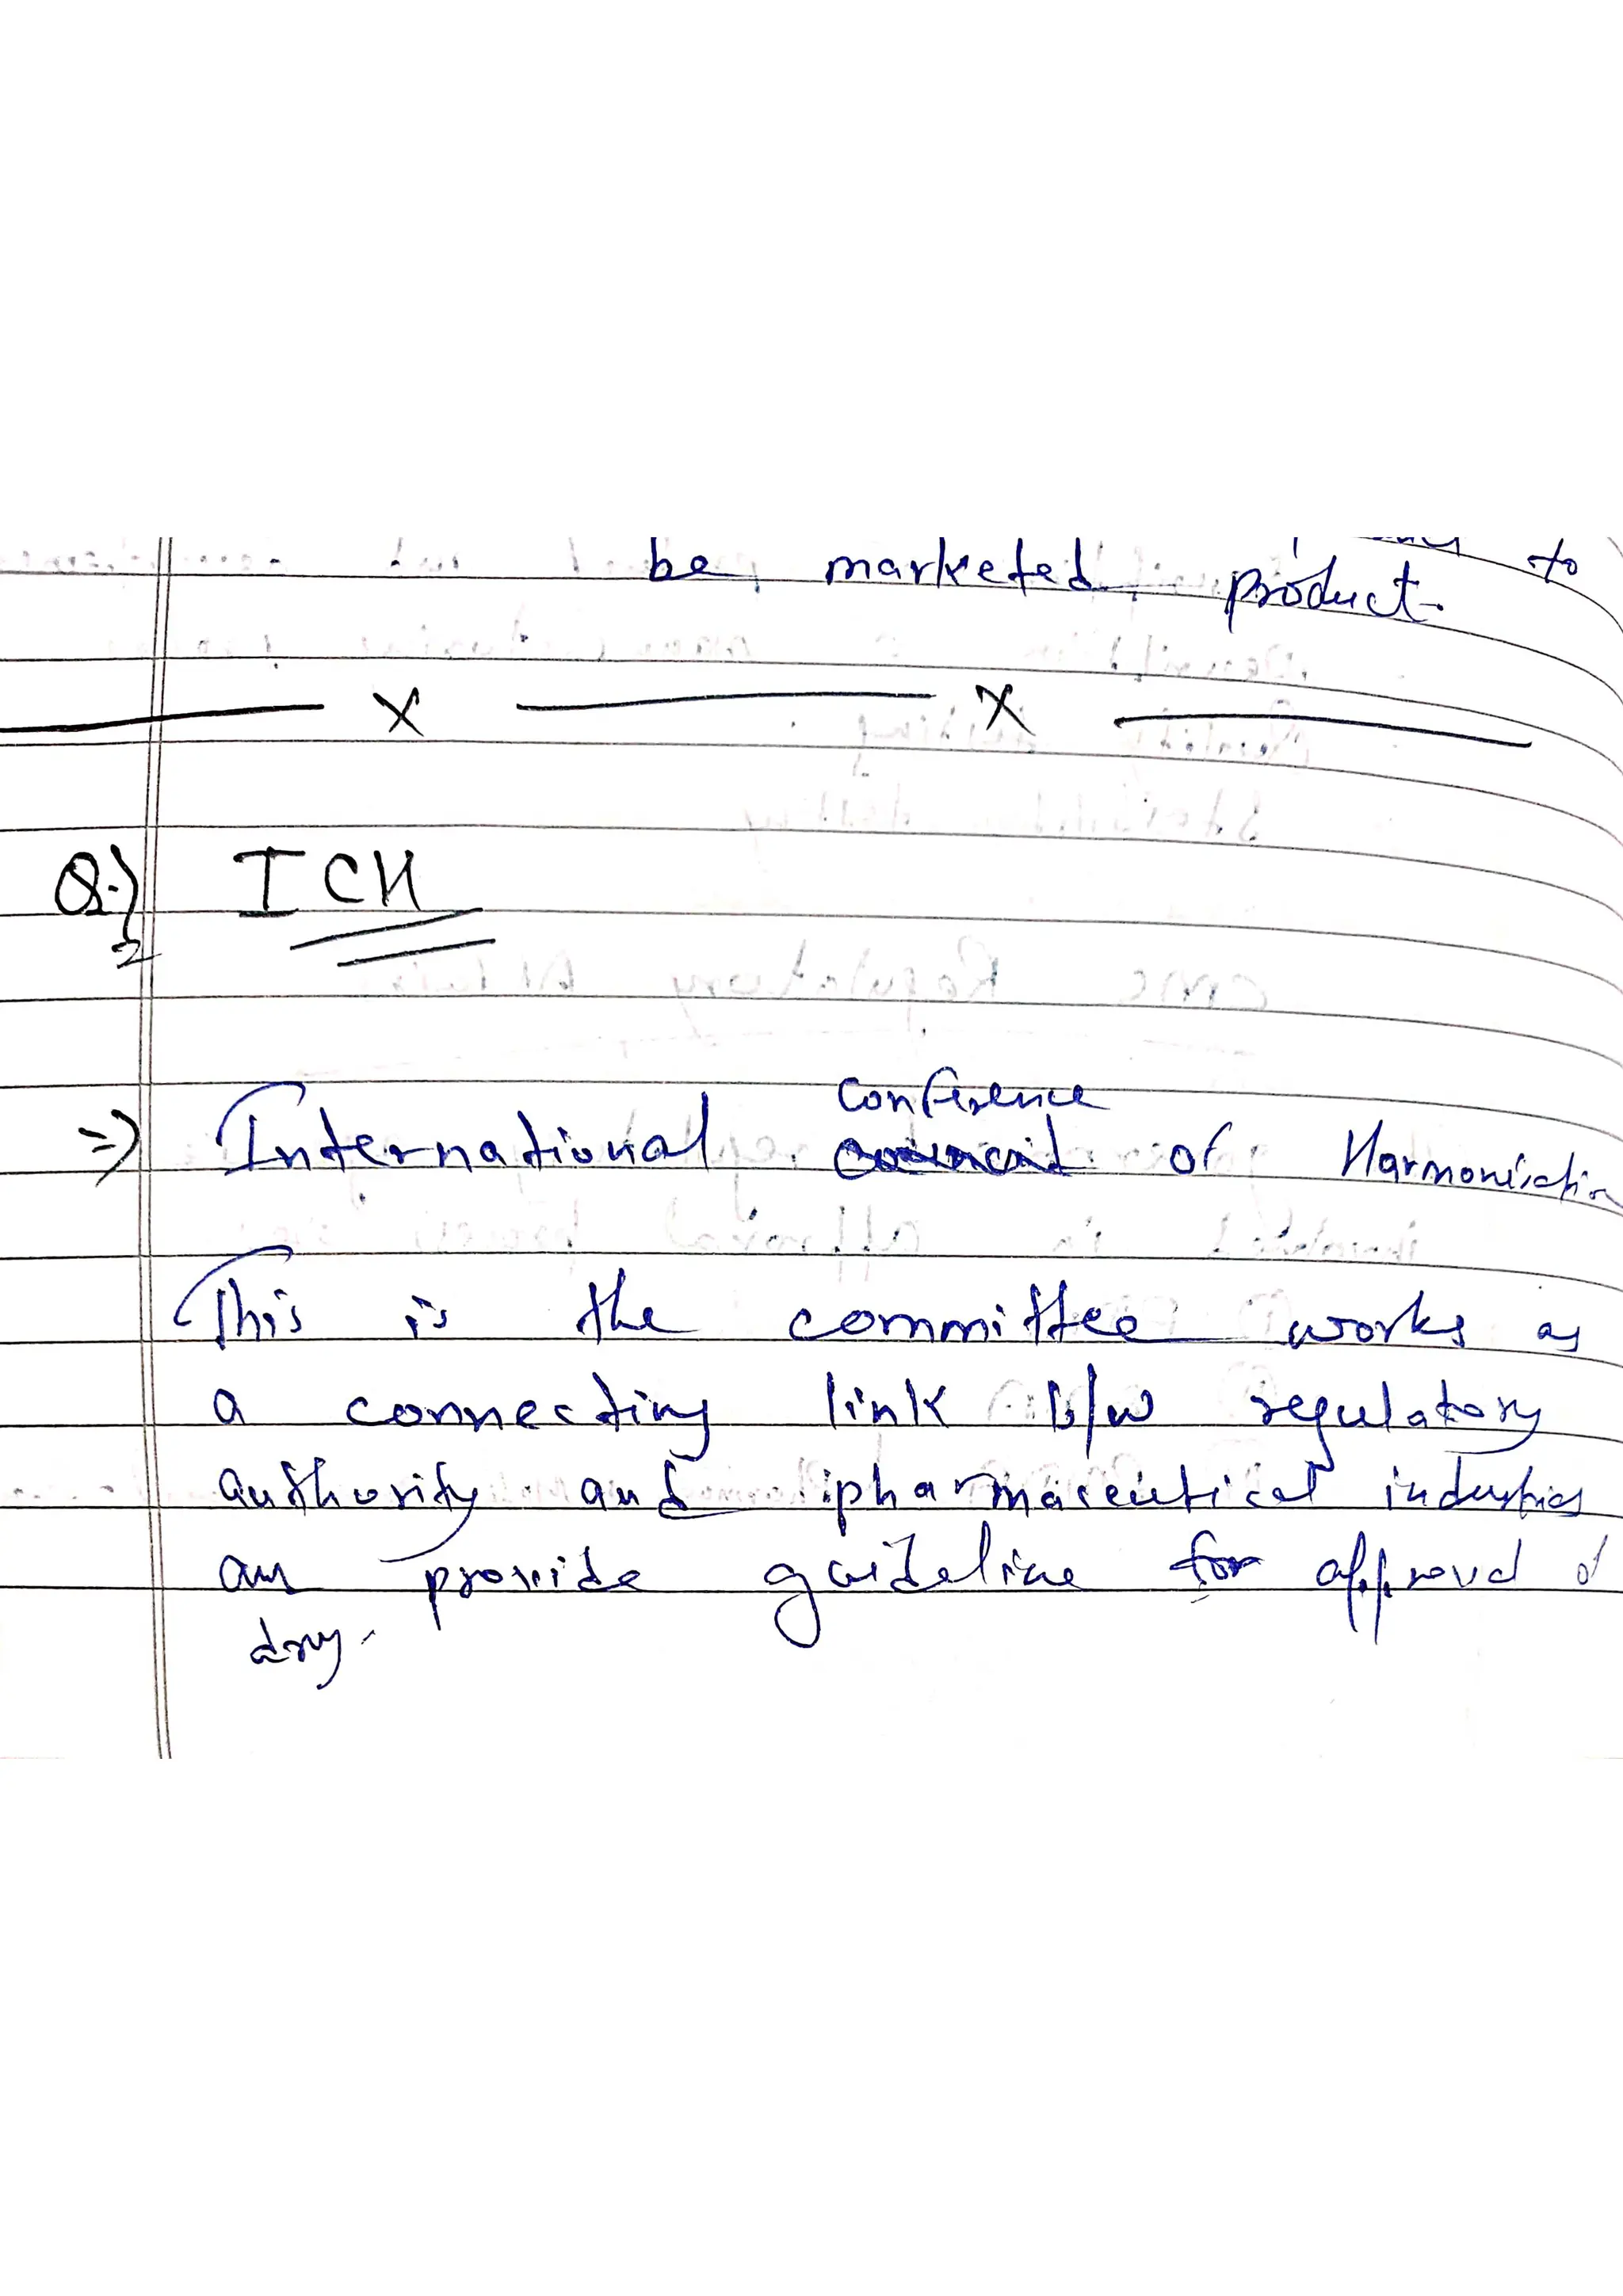 be marketed product. to
x x
Q.2) ICH
=) International conference of Harmonisation
This is the committee works as
a connecting link b/w regulatory
authority and pharmaceutical industries
an provide guideline for approval of
drug.